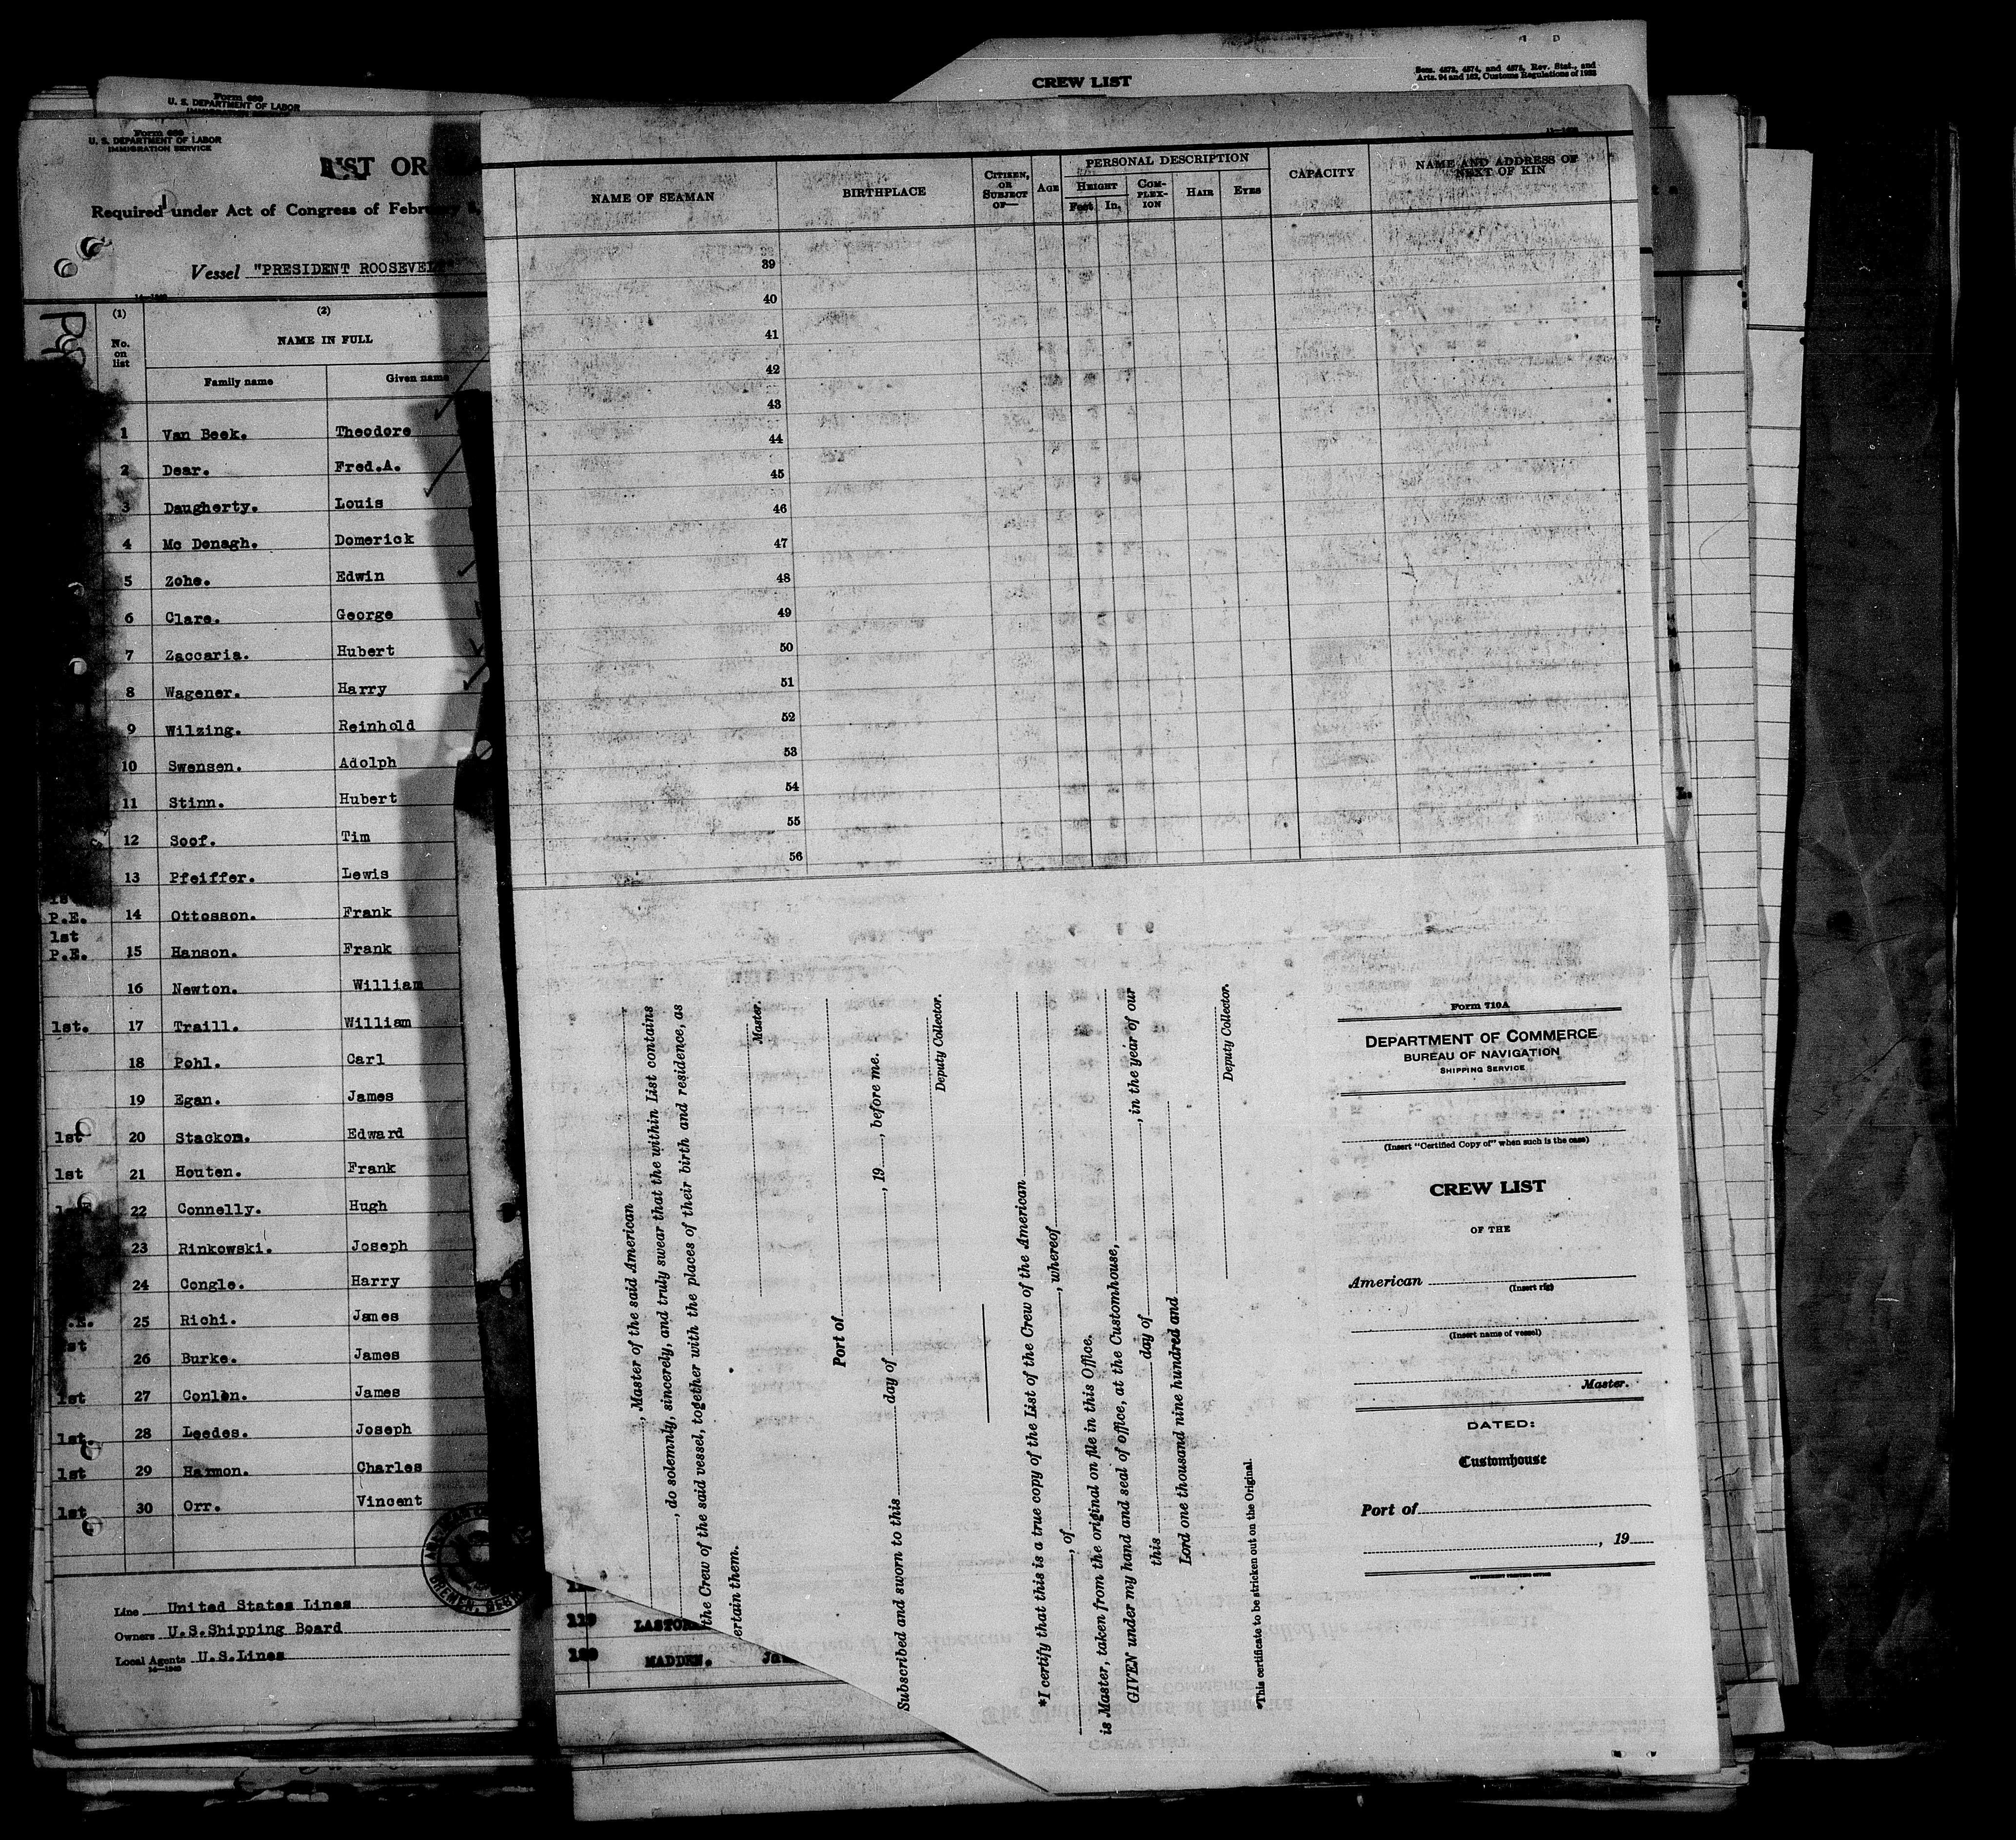 Form 689
U. S. DEPARTMENT OF LABOR
IMMIGRATION SERVICE
Form 689
U. S. DEPARTMENT OF LABOR
IMMIGRATION SERVICE
LIST OR
Required under Act of Congress of February 5,
Vessel "PRESIDENT ROOSEVELT"
(1) (2)
No. on list
NAME IN FULL
Family name Given name
1 Van Beek. Theodore
2 Dear. Fred.A.
3 Daugherty. Louis
4 Mc Donagh. Domerick
5 Zohe. Edwin
6 Clare. George
7 Zaccaria. Hubert
8 Wagener. Harry
9 Wilzing. Reinhold
10 Swensen. Adolph
11 Stinn. Hubert
12 Soof. Tim
13 Pfeiffer. Lewis
P.E. 14 Ottosson. Frank
1st
P.E. 15 Hanson. Frank
16 Newton. William
1st. 17 Traill. William
18 Pohl. Carl
19 Egan. James
1st 20 Stackom. Edward
1st 21 Houten. Frank
22 Connelly. Hugh
23 Rinkowski. Joseph
24 Congle. Harry
25 Richi. James
26 Burke. James
1st 27 Conlon. James
1st. 28 Leedes. Joseph
1st 29 Harmon. Charles
1st 30 Orr. Vincent
Line United States Lines
Owners U.S.Shipping Board
Local Agents U.S.Lines
CREW LIST
Secs. 4573, 4574, and 4575, Rev. Stat., and
Arts. 94 and 162, Customs Regulations of 1923
NAME OF SEAMAN
BIRTHPLACE
CITIZEN, OR SUBJECT OF—
AGE
PERSONAL DESCRIPTION
HEIGHT
Feet In.
COM-PLEX-ION
HAIR
EYES
CAPACITY
NAME AND ADDRESS OF NEXT OF KIN
39
40
41
42
43
44
45
46
47
48
49
50
51
52
53
54
55
56
, Master of the said American
, do solemnly, sincerely, and truly swear that the within List contains
the Crew of the said vessel, together with the places of their birth and residence, as
ertain them.
Master.
Port of
Subscribed and sworn to this day of , 19 , before me.
Deputy Collector.
*I certify that this is a true copy of the List of the Crew of the American
, of , whereof
is Master, taken from the original on file in this Office.
GIVEN under my hand and seal of office, at the Customhouse,
this day of , in the year of our
Lord one thousand nine hundred and
Deputy Collector.
*This certificate to be stricken out on the Original.
Form 710A
DEPARTMENT OF COMMERCE
BUREAU OF NAVIGATION
SHIPPING SERVICE
(Insert "Certified Copy of" when such is the case)
CREW LIST
OF THE
American
(Insert rig)
(Insert name of vessel)
Master.
DATED:
Customhouse
Port of
, 19
GOVERNMENT PRINTING OFFICE
119
MADDEN.